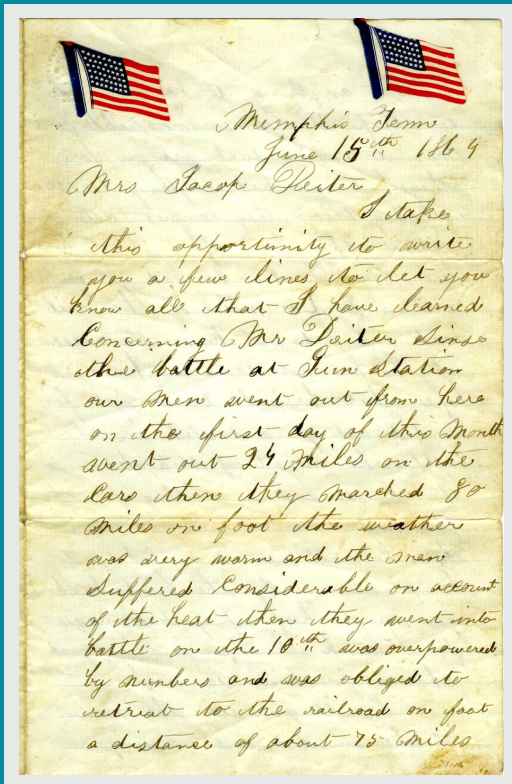 Memphis Tenn
June 15th 1864
Mrs Jacop Deiter
I take
this opportunity to write
you a few lines to let you
know all that I have learned
Concerning Mr Deiter Sinse
the battle at Gun Station
our men went out from here
on the first day of this Month
went out 24 Miles on the
Cars then they marched 80
miles on foot the weather
was very warm and the man
Suffered Considerable on account
of the heat then they went into
battle on the 10th was overpowered
by numbers and was obliged to
retreat to the railroad on foot
a distance of about 75 Miles